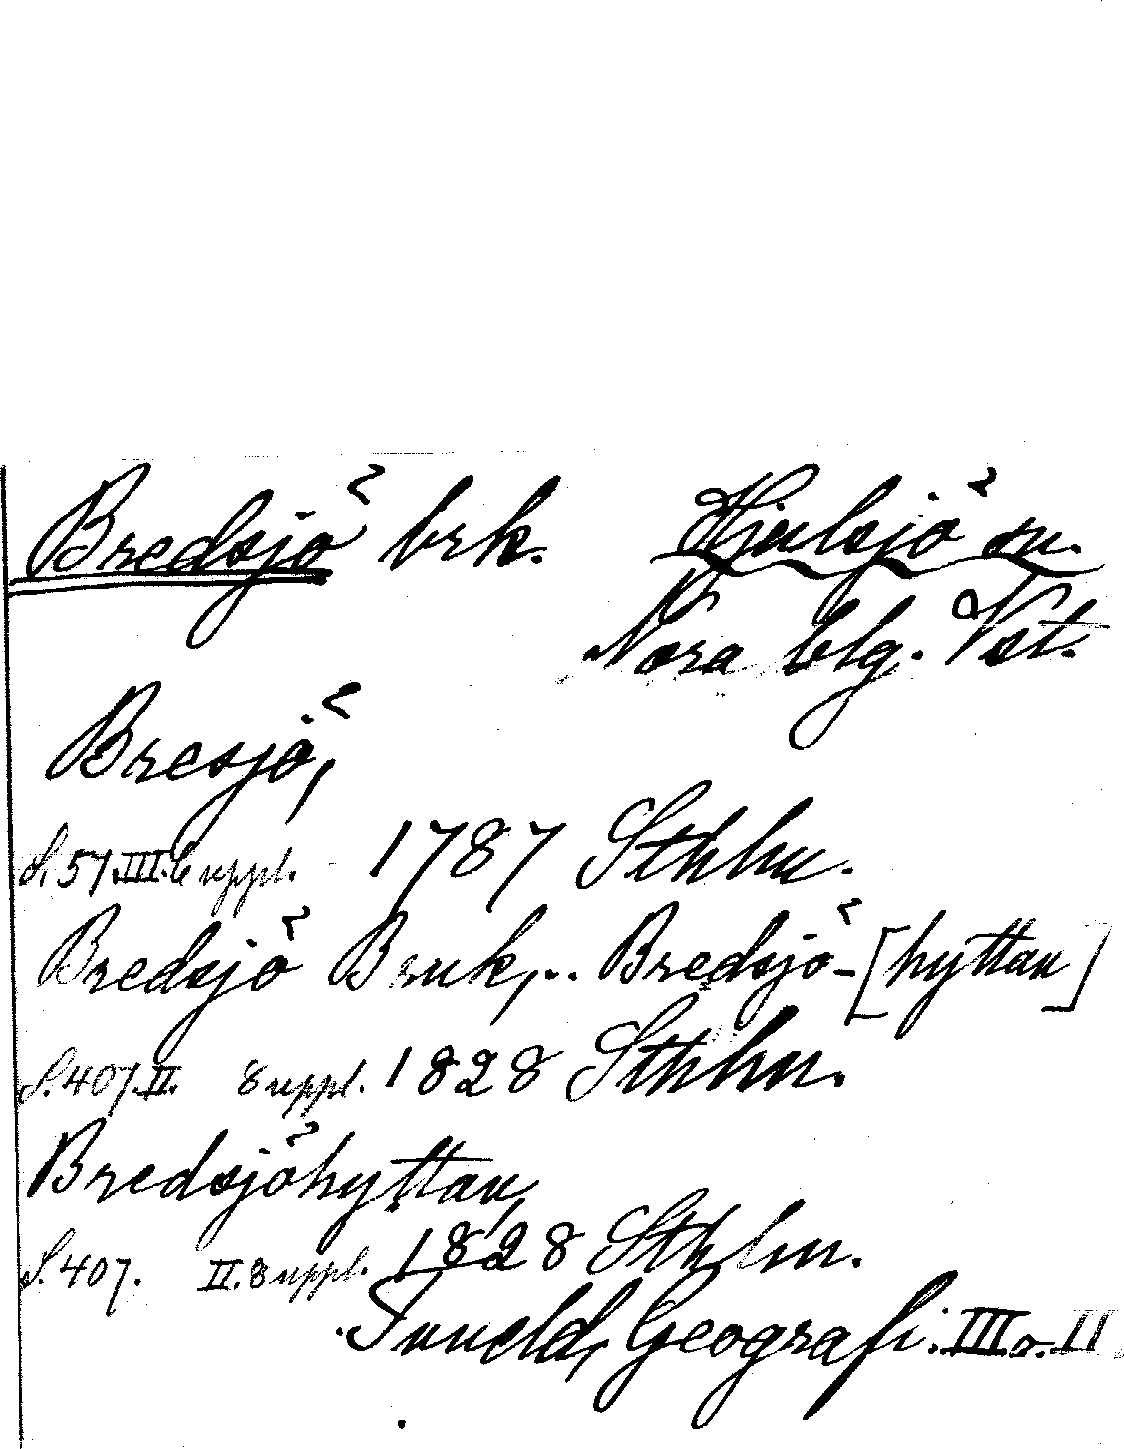 Bredsjö brk. Hjulsjö sn.
Nora blg. Vst.
Bresjö,
S. 51. III. 6 uppl. 1787 Sthlm.
Bredsjö Bruk,.. Bredsjö-[hyttan]
S. 407. II. 8 uppl. 1828 Sthlm.
Bredsjöhyttan,
S. 407. II. 8 uppl. 1828 Sthlm.
Tuneld, Geografi. III o. II